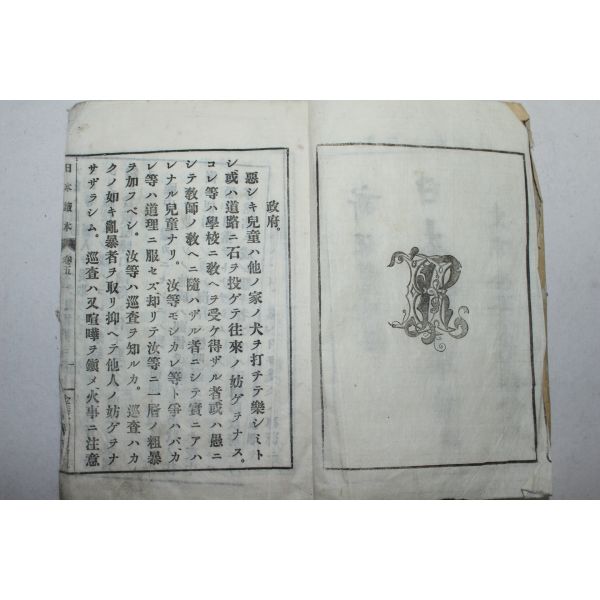 政府。
惡シキ兒童ハ他ノ家ノ犬ヲ打チテ樂シミト
シ或ハ道路ニ石ヲ投ゲテ往來ノ妨ゲヲナス。
コレ等ハ學校ニ敎ヘヲ受ケ得ザル者或ハ愚ニ
シテ敎師ノ敎ヘニ隨ハザル者ニシテ實ニアハ
レナル兒童ナリ。汝等モシカレ等ト爭ハバカ
レ等ハ道理ニ服セズ却リテ汝等ニ一層ノ粗暴
ヲ加フベシ。汝等ハ巡査ヲ知ルカ。巡査ハカ
クノ如キ亂暴者ヲ取リ抑ヘテ他人ノ妨ゲヲナ
サザラシム。巡査ハ又喧嘩ヲ鎭メ火事ニ注意
日本讀本 卷五 一